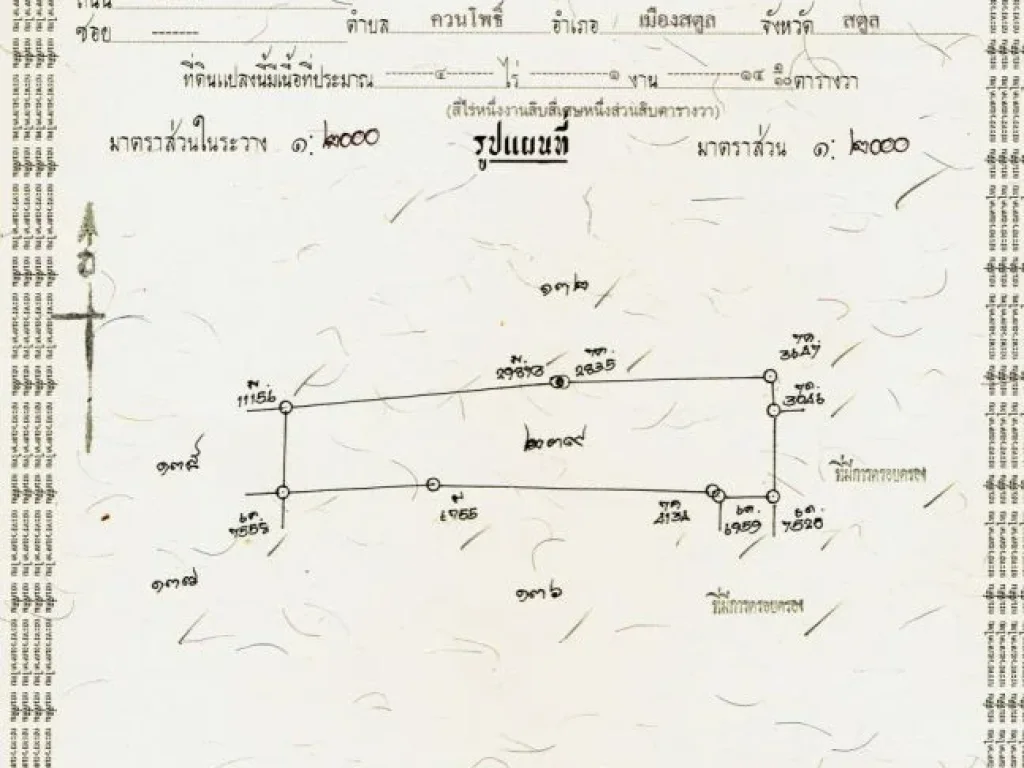 ซอย ------- ตำบล ควนโพธิ์ อำเภอ เมืองสตูล จังหวัด สตูล
ที่ดินแปลงนี้มีเนื้อที่ประมาณ -------๔------- ไร่ -----------๑----- งาน -----------๑๔ ๑/๑๐ ตารางวา
(สี่ไร่หนึ่งงานสิบสี่เศษหนึ่งส่วนสิบตารางวา)
มาตราส่วนในระวาง ๑: ๒๐๐๐ รูปแผนที่ มาตราส่วน ๑: ๒๐๐๐
๑๓๒
3647
2835
3046
๒๓๙
ที่มีการครอบครอง
6755
6959
7520
๑๓๗
๑๓๖
ที่มีการครอบครอง